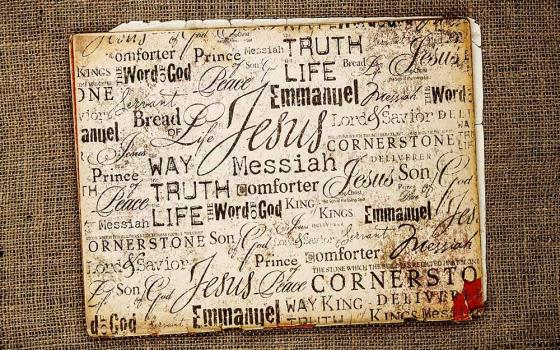 Jesus of God
omforter Prince of Messiah TRUTH
KINGS THE Word OF God Son of God LIFE Bread Life Jesus
ONE Servant Peace Emmanuel Messiah THE Word
anuel Bread OF Life Jesus Lord & Savior DELI
Jesus CORNERSTONE
WAY Messiah DELIVERER
Prince of TRUTH Comforter Jesus Son of God
Peace LIFE THE Word OF God KING Prince of Peace
Messiah KING OF KINGS Emmanuel Jes
ORNERSTONE Son of God Lord & Savior Servant Messiah
Lord & Savior Prince of Comforter
THE STONE WHICH THE BUILDERS REJECTED
Life Son of God Jesus Peace CORNERSTO
WAY KING DELIVER
d OF God Emmanuel TRUTH KINGS Messiah